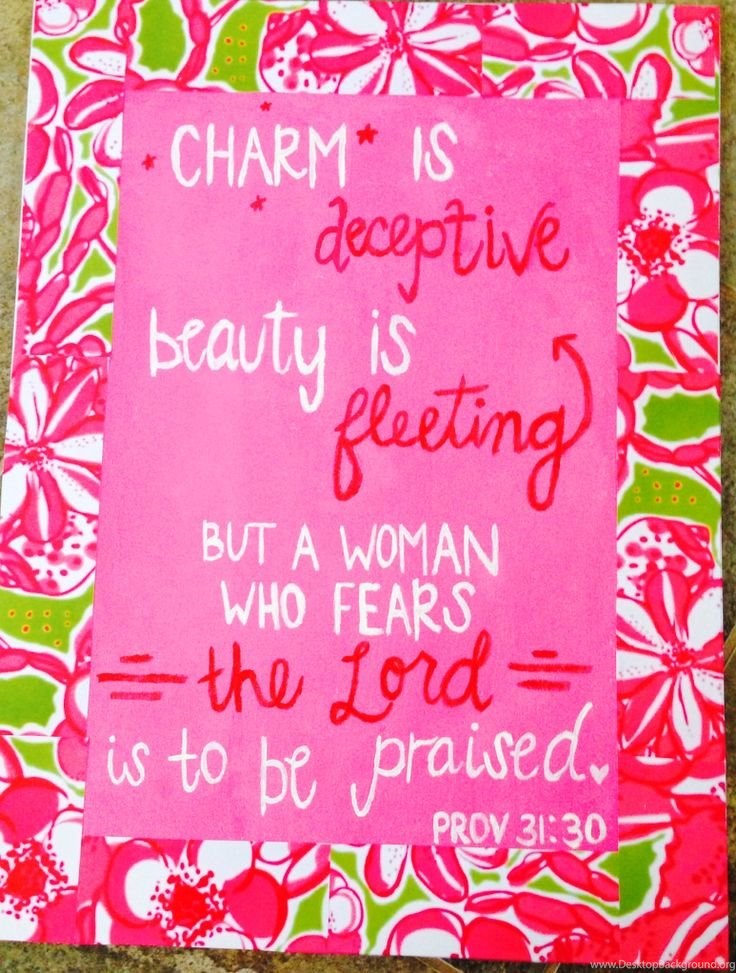 CHARM IS
deceptive
beauty is
fleeting
BUT A WOMAN
WHO FEARS
the Lord
is to be praised.
PROV 31:30
www.DesktopBackground.org